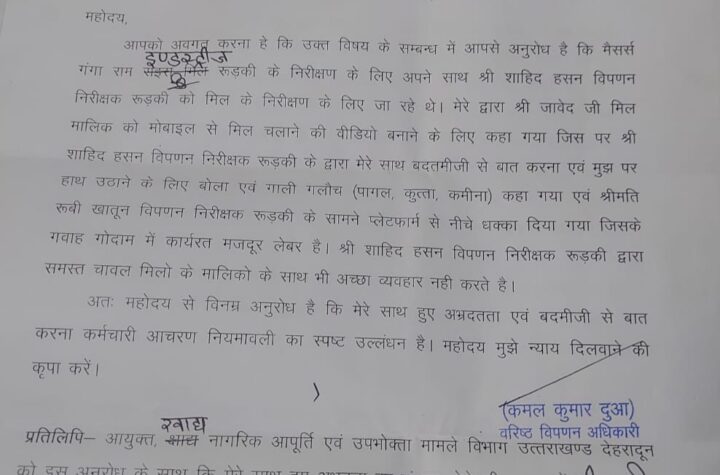 महोदय,
आपको अवगत करना है कि उक्त विषय के सम्बन्ध में आपसे अनुरोध है कि मैसर्स
इण्डस्ट्रीज
गंगा राम राईस मिल रूड़की के निरीक्षण के लिए अपने साथ श्री शाहिद हसन विपणन
निरीक्षक रूड़की को मिल के निरीक्षण के लिए जा रहे थे। मेरे द्वारा श्री जावेद जी मिल
मालिक को मोबाइल से मिल चलाने की वीडियो बनाने के लिए कहा गया जिस पर श्री
शाहिद हसन विपणन निरीक्षक रूड़की के द्वारा मेरे साथ बदतमीजी से बात करना एवं मुझ पर
हाथ उठाने के लिए बोला एवं गाली गलौच (पागल, कुत्ता, कमीना) कहा गया एवं श्रीमति
रूबी खातून विपणन निरीक्षक रूड़की के सामने प्लेटफार्म से नीचे धक्का दिया गया जिसके
गवाह गोदाम में कार्यरत मजदूर लेबर है। श्री शाहिद हसन विपणन निरीक्षक रूड़की द्वारा
समस्त चावल मिलो के मालिको के साथ भी अच्छा व्यवहार नही करते है।
अतः महोदय से विनम्र अनुरोध है कि मेरे साथ हुए अभ्रदतता एवं बदमीजी से बात
करना कर्मचारी आचरण नियमावली का स्पष्ट उल्लंघन है। महोदय मुझे न्याय दिलवाने की
कृपा करें।
(कमल कुमार दुआ)
वरिष्ठ विपणन अधिकारी
खाद्य
प्रतिलिपि– आयुक्त, नागरिक आपूर्ति एवं उपभोक्ता मामले विभाग उत्तराखण्ड देहरादून
को इस अनुरोध के साथ कि मेरे साथ हुए